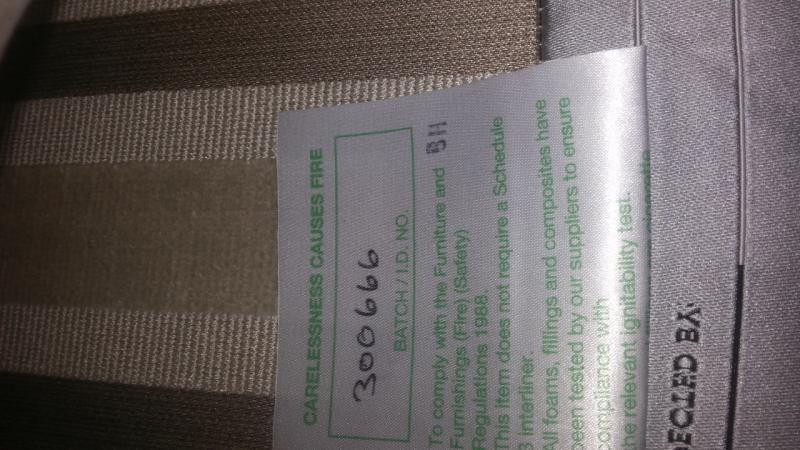 CARELESSNESS CAUSES FIRE
300666
BATCH / I.D. NO.
BH
To comply with the Furniture and
Furnishings (Fire) (Safety)
Regulations 1988.
This item does not require a Schedule
3 interliner.
All foams, fillings and composites have
been tested by our suppliers to ensure
compliance with
the relevant ignitability test.